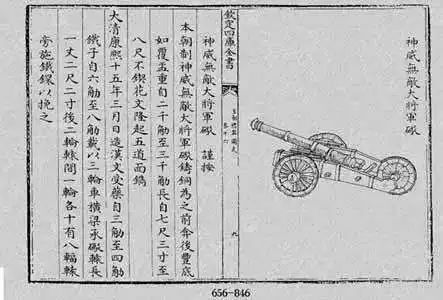 神威無敵大將軍礮
欽定四庫全書
皇朝禮器圖式
卷十六
九
神威無敵大將軍礮 謹按
本朝制神威無敵大將軍礮鑄銅為之前弇後豐底
如覆盂重自二千觔至三千觔長自七尺三寸至
八尺不鍥花文隆起五道面鐫
大清康熙十五年三月日造漢文受藥自三觔至四觔
鐵子自六觔至八觔載以三輪車橫梁承礮轅長
一丈二尺二寸後二輪轅間一輪各十有八輻轅
旁施鐵鐶以挽之
656-846